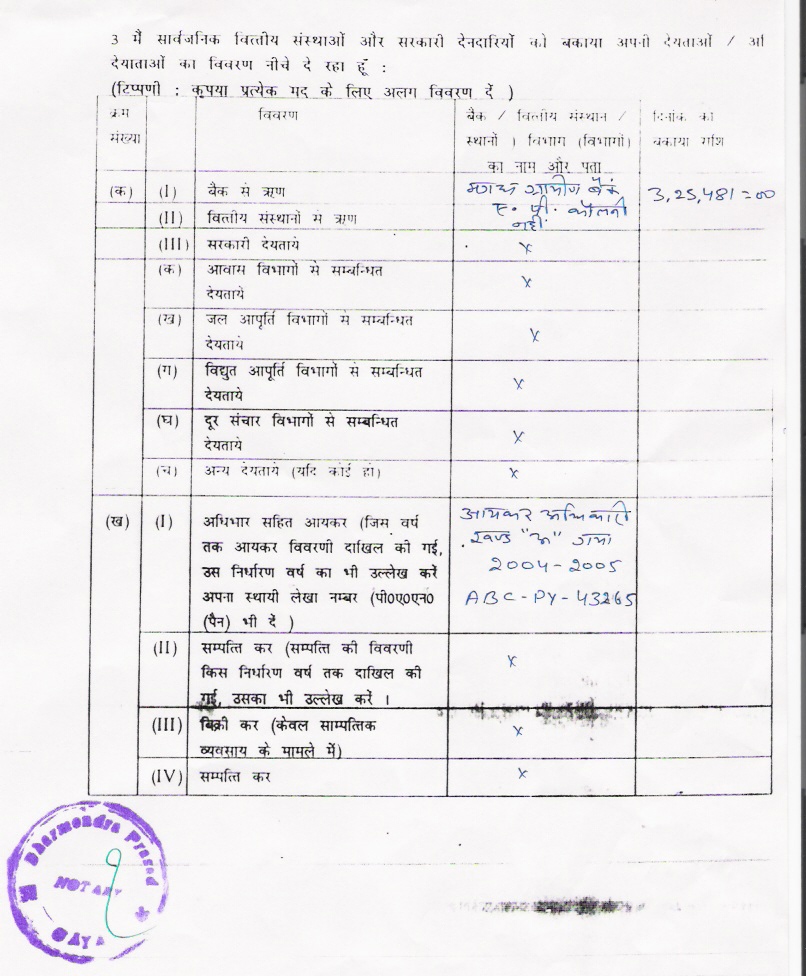 3 मैं सार्वजनिक वित्तीय संस्थाओं और सरकारी देनदारियों को बकाया अपनी देयताओं / अति
देयाताओं का विवरण नीचे दे रहा हूँ :
(टिप्पणी : कृपया प्रत्येक मद के लिए अलग विवरण दें )
क्रम संख्या विवरण बैंक / वित्तीय संस्थान / दिनांक का
स्थानों ) विभाग (विभागों) बकाया राशि
का नाम और पता
(क) (I) बैंक से ऋण मगध ग्रामीण बैंक 3,25,481=00
ए. पी. कॉलनी
(II) वित्तीय संस्थानों से ऋण नहीं
(III) सरकारी देयताये x
(क) आवास विभागों से सम्बन्धित x
देयताये
(ख) जल आपूर्ति विभागों से सम्बन्धित x
देयताये
(ग) विद्युत आपूर्ति विभागों से सम्बन्धित x
देयताये
(घ) दूर संचार विभागों से सम्बन्धित x
देयताये
(च) अन्य देयताये (यदि कोई हो) x
(ख) (I) अधिभार सहित आयकर (जिस वर्ष आयकर अधिकारी
तक आयकर विवरणी दाखिल की गई, खण्ड "अ" गया
उस निर्धारण वर्ष का भी उल्लेख करें 2004-2005
अपना स्थायी लेखा नम्बर (पी0ए0एन0 ABC-PY-43265
(पैन) भी दें )
(II) सम्पत्ति कर (सम्पत्ति की विवरणी x
किस निर्धारण वर्ष तक दाखिल की
गई, उसका भी उल्लेख करें ।
(III) बिक्री कर (केवल साम्पत्तिक x
व्यवसाय के मामले में)
(IV) सम्पत्ति कर x
Dharmendra Prasad
NOTARY
GAYA